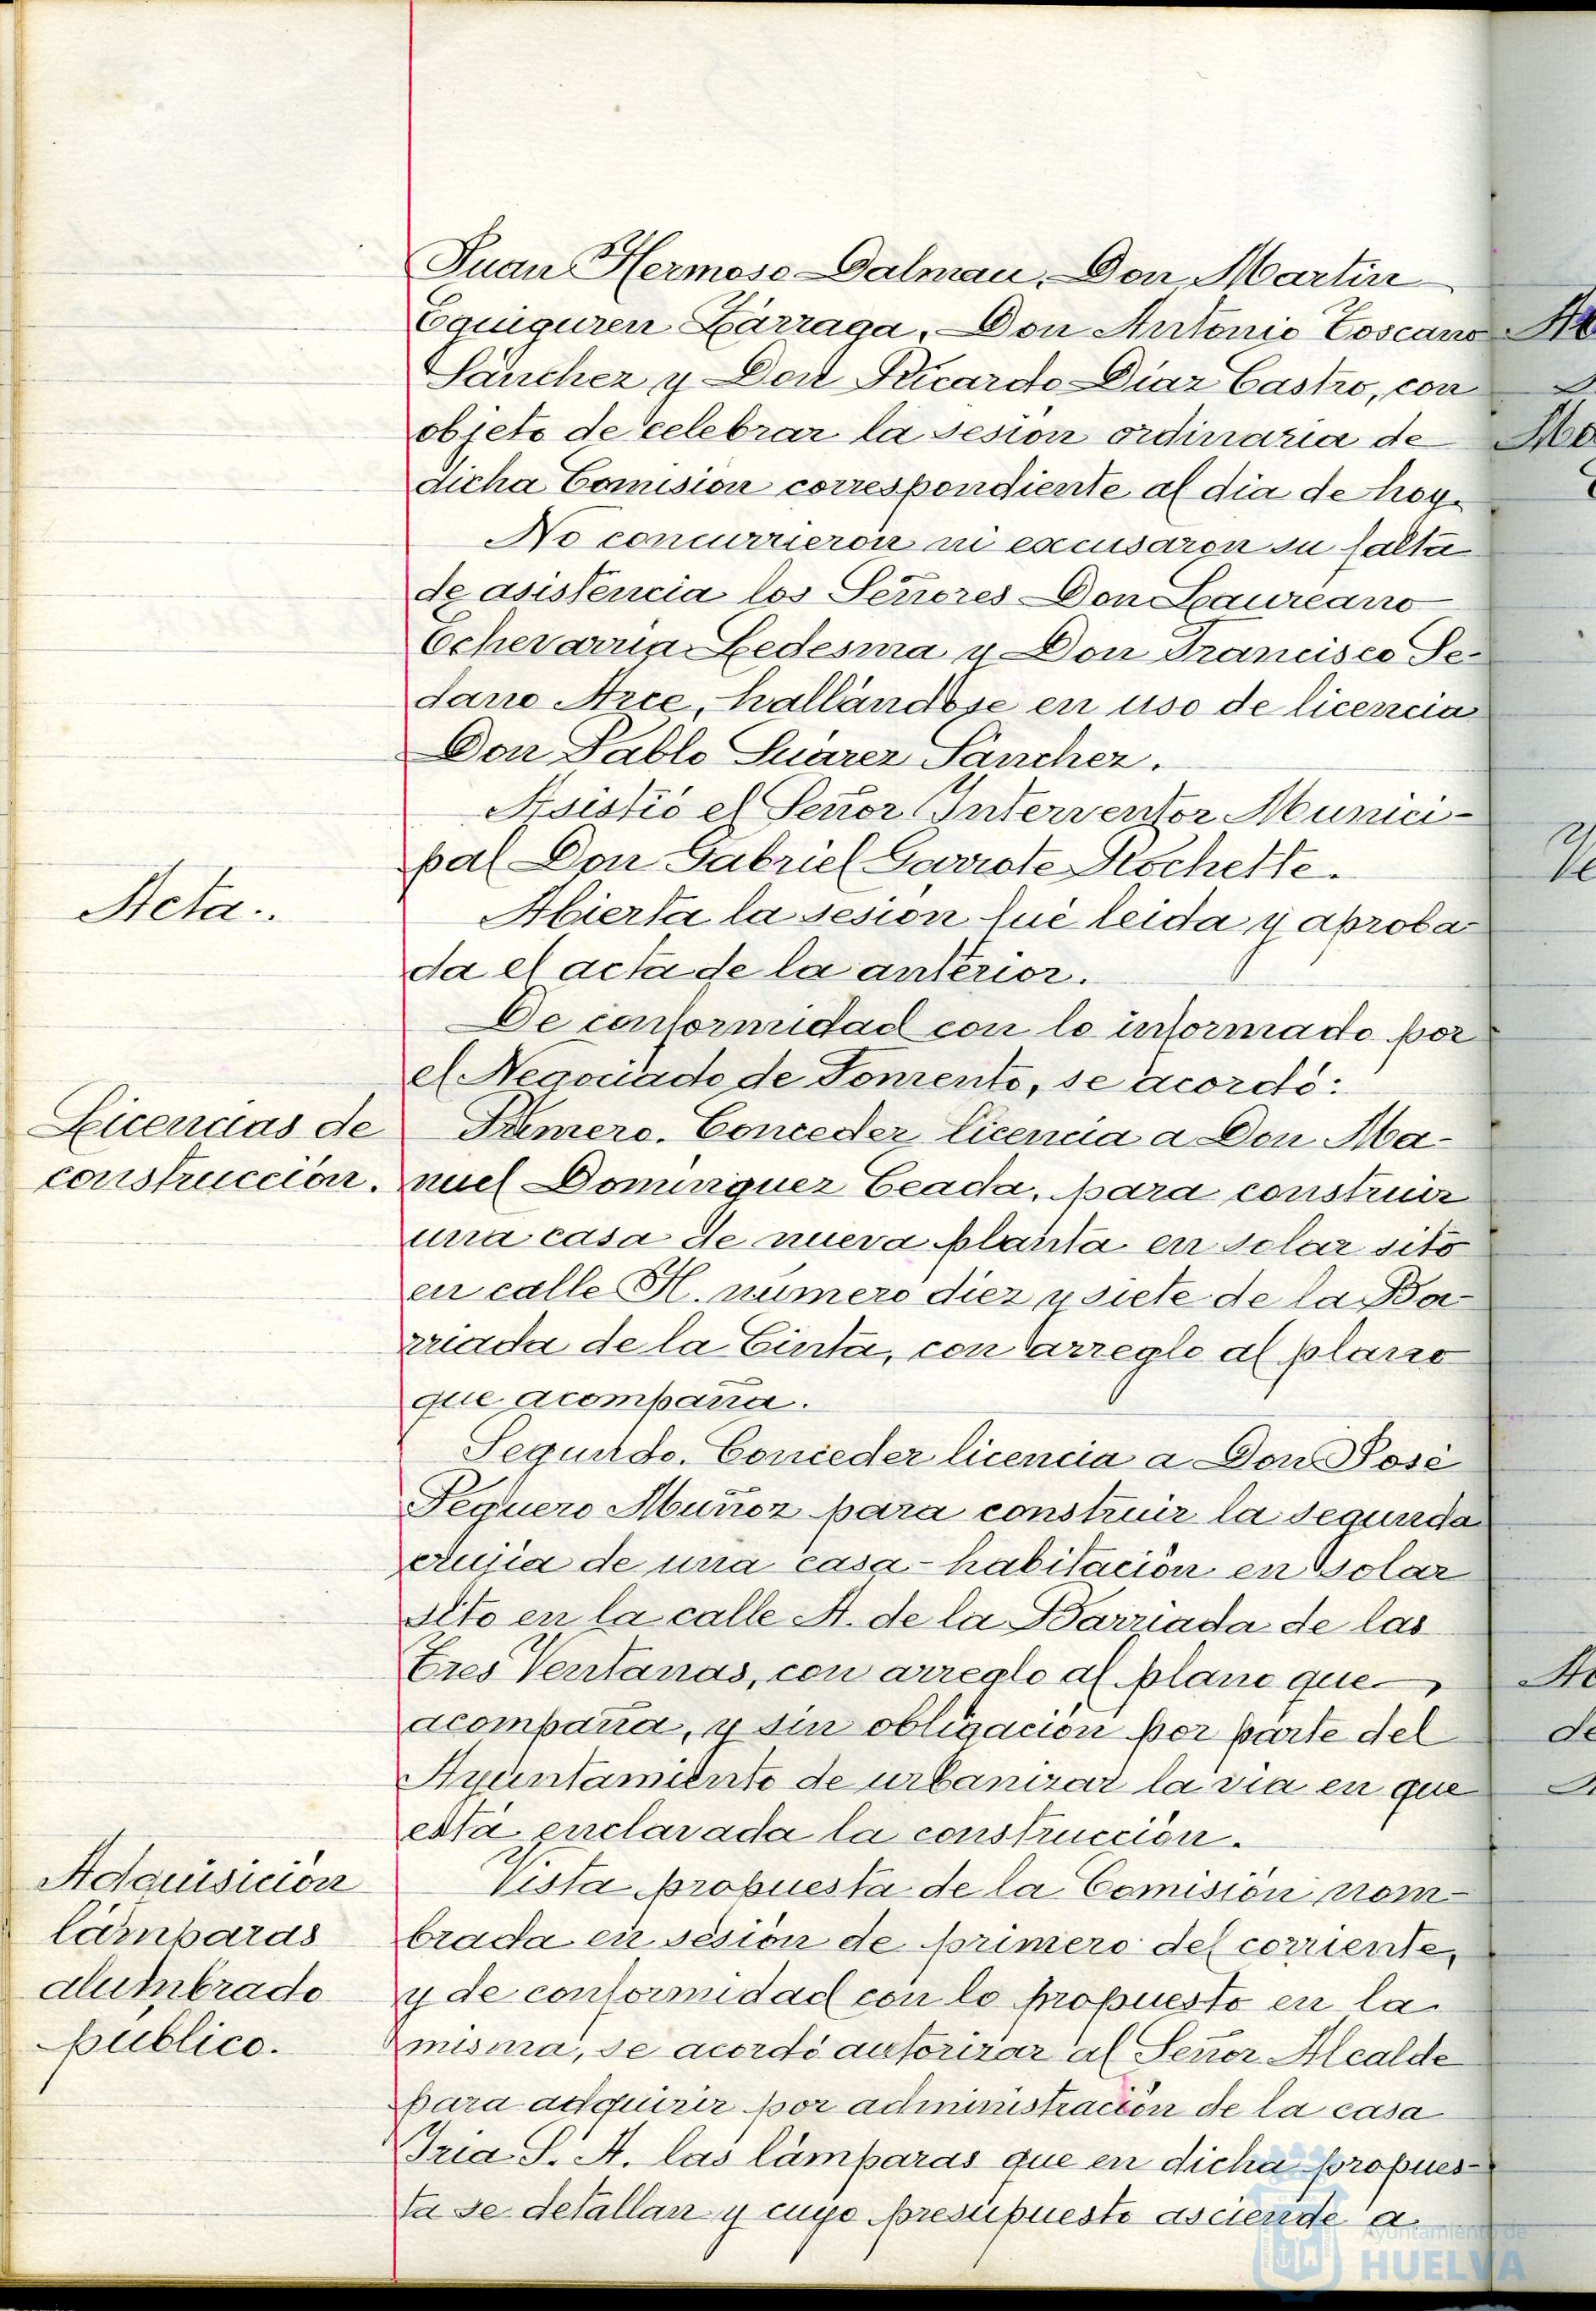 Juan Hermoso Dalmau, Don Martin
Eguiguren Lárraga, Don Antonio Toscano
Sánchez y Don Ricardo Diaz Castro, con
objeto de celebrar la sesion ordinaria de
dicha Comision correspondiente al dia de hoy.
No concurrieron ni excusaron su falta
de asistencia los Señores Don Laureano
Echevarria Ledesma y Don Francisco Se-
dano Arce, hallándose en uso de licencia
Don Pablo Suárez Sánchez.
Asistió el Señor Interventor Munici-
pal Don Gabriel Garrote Rochette.
Acta.
Abierta la sesion fué leida y aproba-
da el acta de la anterior.
De conformidad con lo informado por
el Negociado de Fomento, se acordó:
Licencias de
construcción.
Primero. Conceder licencia a Don Ma-
nuel Dominguez Ceada, para construir
una casa de nueva planta en solar sito
en calle H. número diez y siete de la Ba-
rriada de la Cinta, con arreglo al plano
que acompaña.
Segundo. Conceder licencia a Don José
Pequero Muñoz para construir la segunda
crujia de una casa-habitación en solar
sito en la calle A. de la Barriada de las
Tres Ventanas, con arreglo al plano que
acompaña, y sin obligación por parte del
Ayuntamiento de urbanizar la via en que
está enclavada la construcción.
Adquisición
lámparas
alumbrado
público.
Vista propuesta de la Comisión nom-
brada en sesión de primero del corriente,
y de conformidad con lo propuesto en la
misma, se acordó autorizar al Señor Alcalde
para adquirir por administración de la casa
Iria S. A. las lámparas que en dicha propues-
ta se detallan y cuyo presupuesto asciende a
Ayuntamiento de
HUELVA